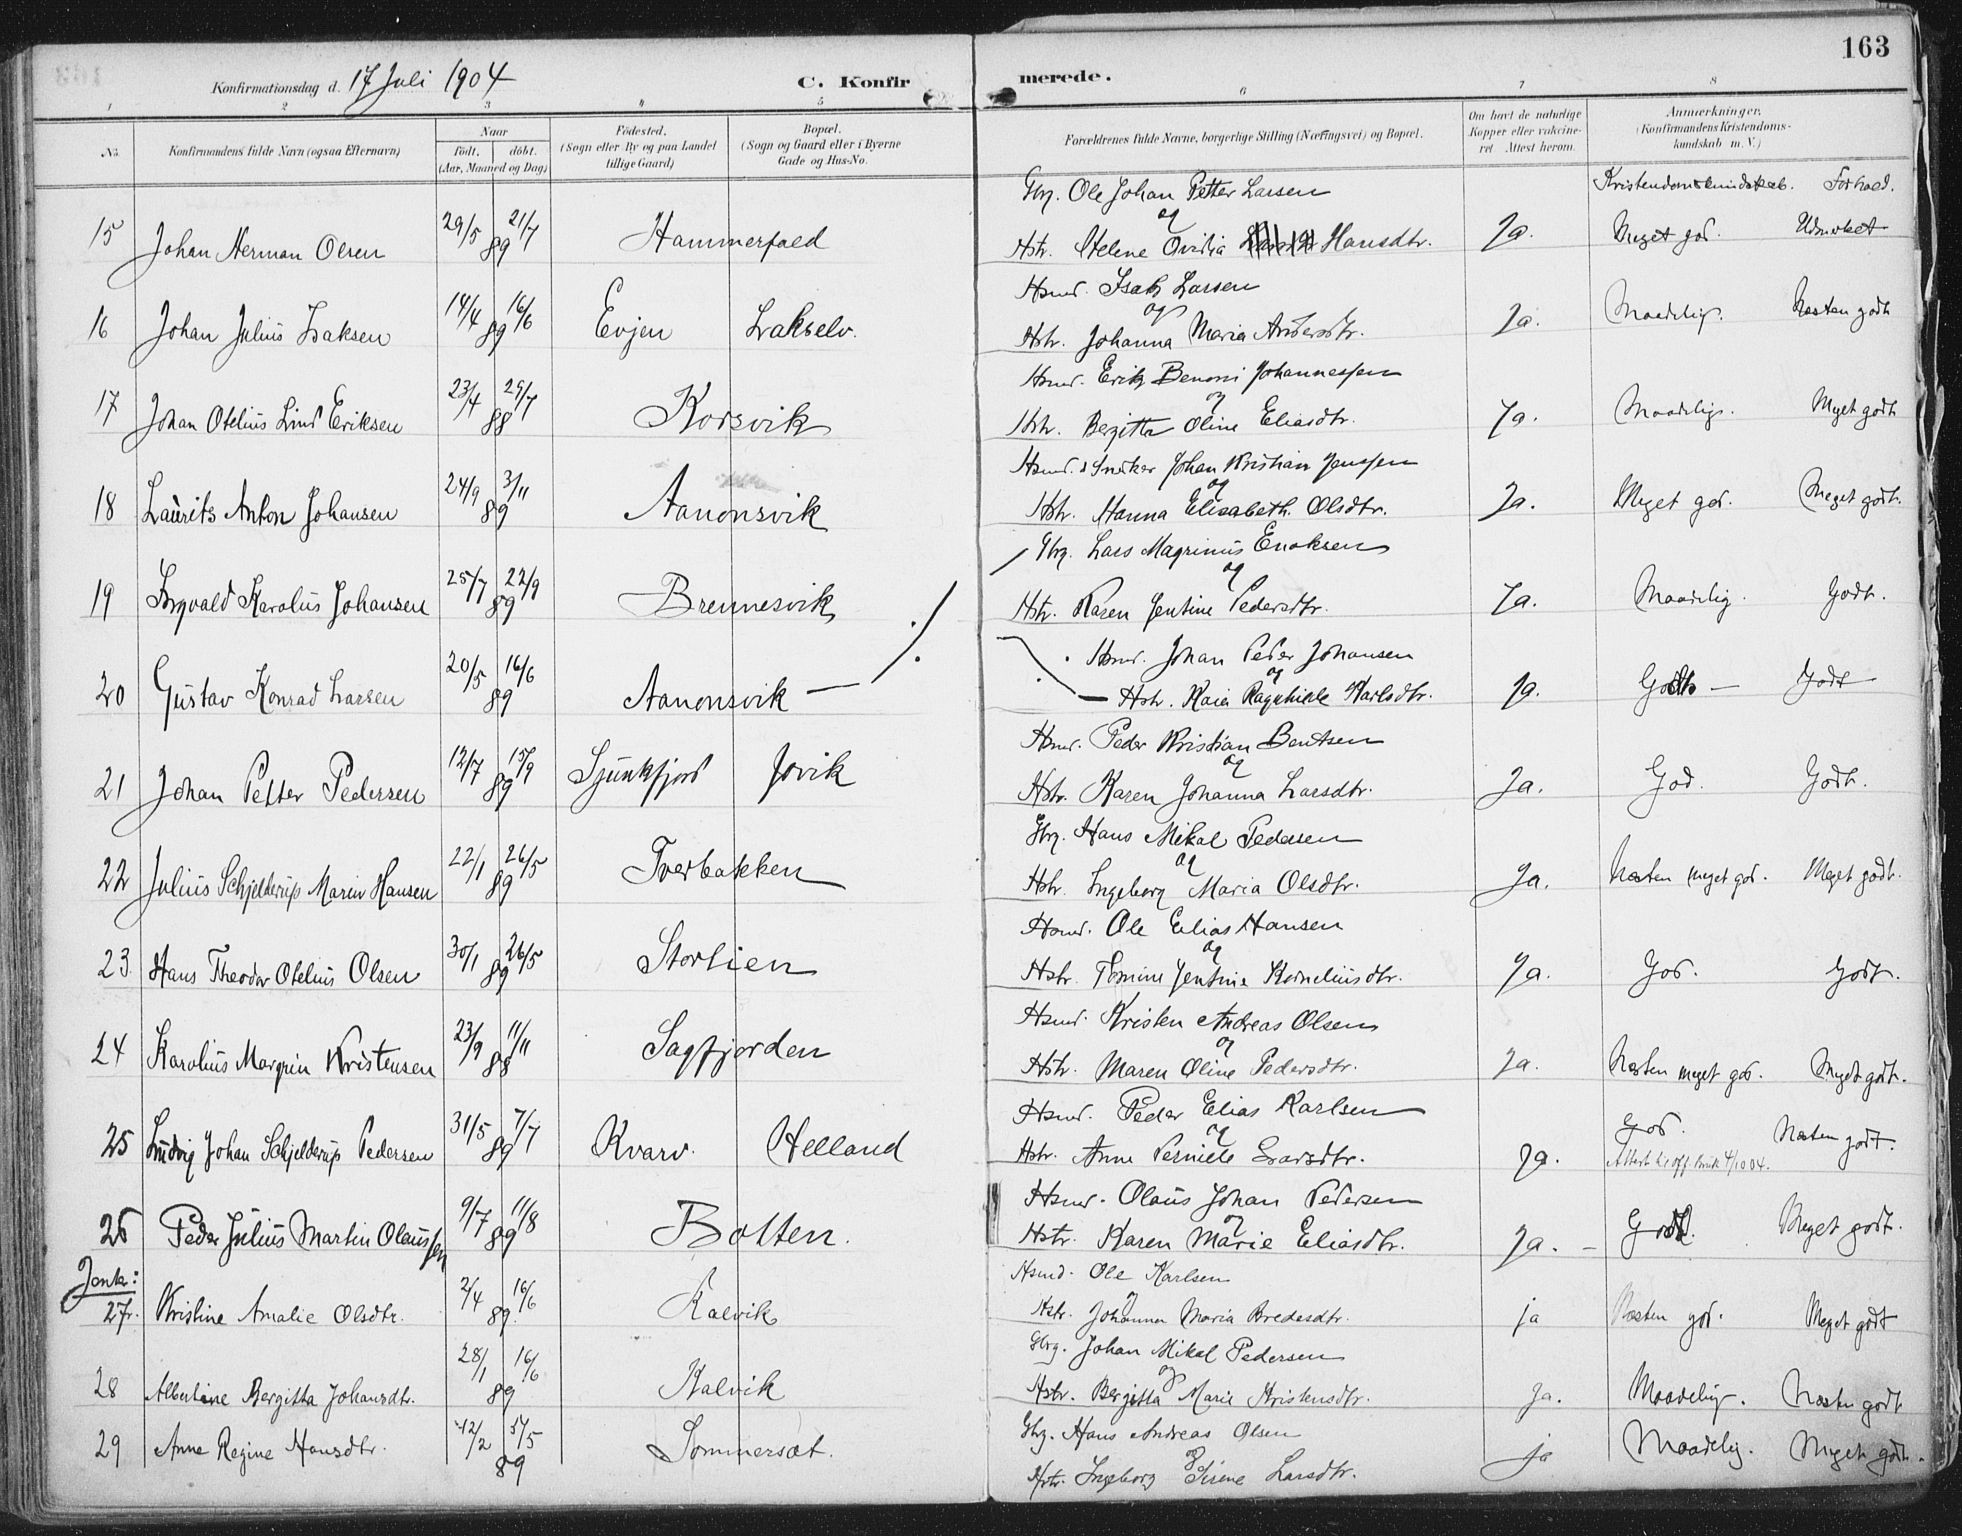 163
Konfirmationsdag d. 17 Juli 1904 C. Konfirmerede.
1 2 3 4 5 6 7 8
No. Konfirmandens fulde Navn (ogsaa Efternavn) Naar født. døbt. (Aar, Maaned og Dag) Fødested. (Sogn eller By og paa Landet tillige Gaard) Bopæl. (Sogn og Gaard eller i Byerne Gade og Hus-No. Forældrenes fulde Navne, borgerlige Stilling (Næringsvei) og Bopæl. Om havt de naturlige Kopper eller vakcineret. Attest herom. Anmærkninger. (Konfirmandens Kristendomskundskab m. V.)
Gbrg. Ole Johan Petter Larsen Kristendomskundskab. Forhold.
15 Johan Herman Olsen 29/5 89 21/7 Hammerfald og Hstr. Helene Ovidia Hansdtr. Ja. Meget god. Udmerket
Hsmd. Isak Larsen
16 Johan Julius Isaksen 14/4 89 16/6 Evjen Lakselv. og Hstr. Johanna Maria Andersdtr. Ja. Maadelig. Næsten godt
Hsmd. Erik Benoni Johannessen
17 Johan Otelius Lind Eriksen 23/4 88 29/7 Korsvik og Hstr. Bergitta Oline Eliasdtr. Ja. Maadelig. Meget godt
Hsmd. & Snedker Johan Kristian Jenssen
18 Laurits Anton Johansen 24/9 89 3/11 Aanonsvik og Hstr. Hanna Elisabeth Olsdtr. Ja. Meget god. Meget godt.
Gbrg. Lars Magrinus Enoksen
19 Ingvald Karolius Johansen 25/7 89 22/9 Brennesvik og Hstr. Karen Jentine Pedersdtr. Ja. Maadelig. Godt.
Hsmd. Johan Peder Johansen
20 Gustav Konrad Larsen 20/5 89 16/6 Aanonsvik og Hstr. Kaia Ragnhilde Karlsdtr. Ja. God — Godt
Hsmd. Peder Kristian Bentsen
21 Johan Petter Pedersen 12/7 89 15/9 Sjunkfjord Jovik og Hstr. Karen Johanna Larsdtr. Ja. God. Godt.
Gbrg. Hans Mikal Pedersen
22 Julius Schjelderup Marin Hansen 22/1 89 26/5 Tverbakken og Hstr. Ingeborg Maria Olsdtr. Ja. Næsten meget god. Meget godt.
Hsmd. Ole Elias Hansen
23. Hans Theodor Otelius Olsen 30/1 89 26/5 Storlien og Hstr. Tomine Jentine Korneliusdtr. Ja. God. Godt.
Hsmd. Kristen Andreas Olsen
24 Karolius Margrin Kristensen 23/9 88 11/11 Sagfjorden og Hstr. Maren Oline Pedersdtr. Ja. Næsten meget god. Meget godt.
Hsmd. Peder Elias Karlsen God.
25 Ludvig Johan Schjelderup Pedersen 31/5 89 7/7 Kvarv. Helland og Hstr. Anne Pernille Larsdtr. Ja. Attest til off. Bruk 4/10 04. Næsten godt.
Hsmd. Olaus Johan Pedersen
26 Peder Julius Martin Olaussen 9/7 89 11/8 Botten. og Hstr. Karen Marie Eliasdtr. Ja. — God. Meget godt.
Jenter: Hsmd. Ole Karlsen
27. Kristine Amalie Olsdtr. 2/4 89 16/6 Kalvik og Hstr. Johanna Maria Bredesdtr. ja Næsten god. Meget godt
Gbrg. Johan Mikal Pedersen
28 Albertine Bergitta Johansdtr. 28/1 89 16/6 Kalvik og Hstr. Bergitta Marie Kristensdtr. Ja. Maadelig. Næsten godt
Gbrg. Hans Andreas Olsen
29 Anne Regine Hansdtr. 12/2 89 5/5 Sommerset. og Hstr. Ingeborg Sirene Larsdtr. ja Maadelig. Meget godt.